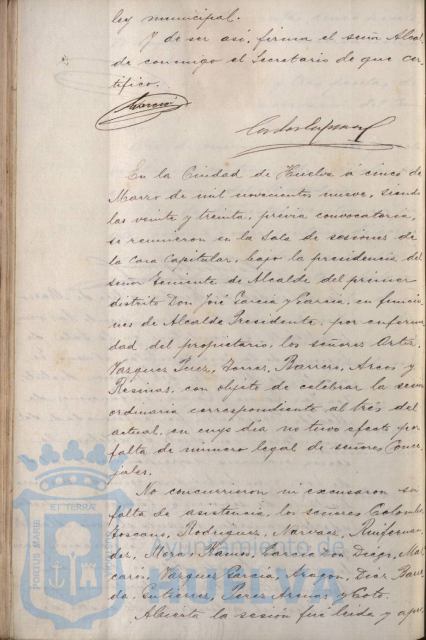 ley municipal.
Y de ser así, firma el señor Alcal-
de conmigo el Secretario de que cer-
tifico.
García
En la Ciudad de Huelva á cinco de
Marzo de mil novecientos nueve, siendo
las veinte y treinta, prévia convocatoria,
se reunieron en la Sala de sesiones de
la Casa Capitular, bajo la presidencia del
señor Teniente de Alcalde del primer
distrito Don José García y García, en funcio-
nes de Alcalde Presidente, por enferme-
dad del propietario, los señores Ortiz,
Vazquez Perez, Torres, Barrero, Arcos y
Resinas, con objeto de celebrar la sesion
ordinaria correspondiente al tres del
actual, en cuyo dia no tuvo efecto por
falta de número legal de señores Conce-
jales.
No concurrieron ni excusaron su
falta de asistencia, los señores Colombo,
Toscano, Rodriguez, Narvaez, Ruifernan-
dez, Mojo, García de Diego, Mas-
caros, Vazquez García, Aragon, Diaz, Ban-
da, Gutierrez, Perez Armas y Coto.
Abierta la sesión fué leida y apro-
PORTUS MARIS
ET TERRA
Ayuntamiento de
HUELVA